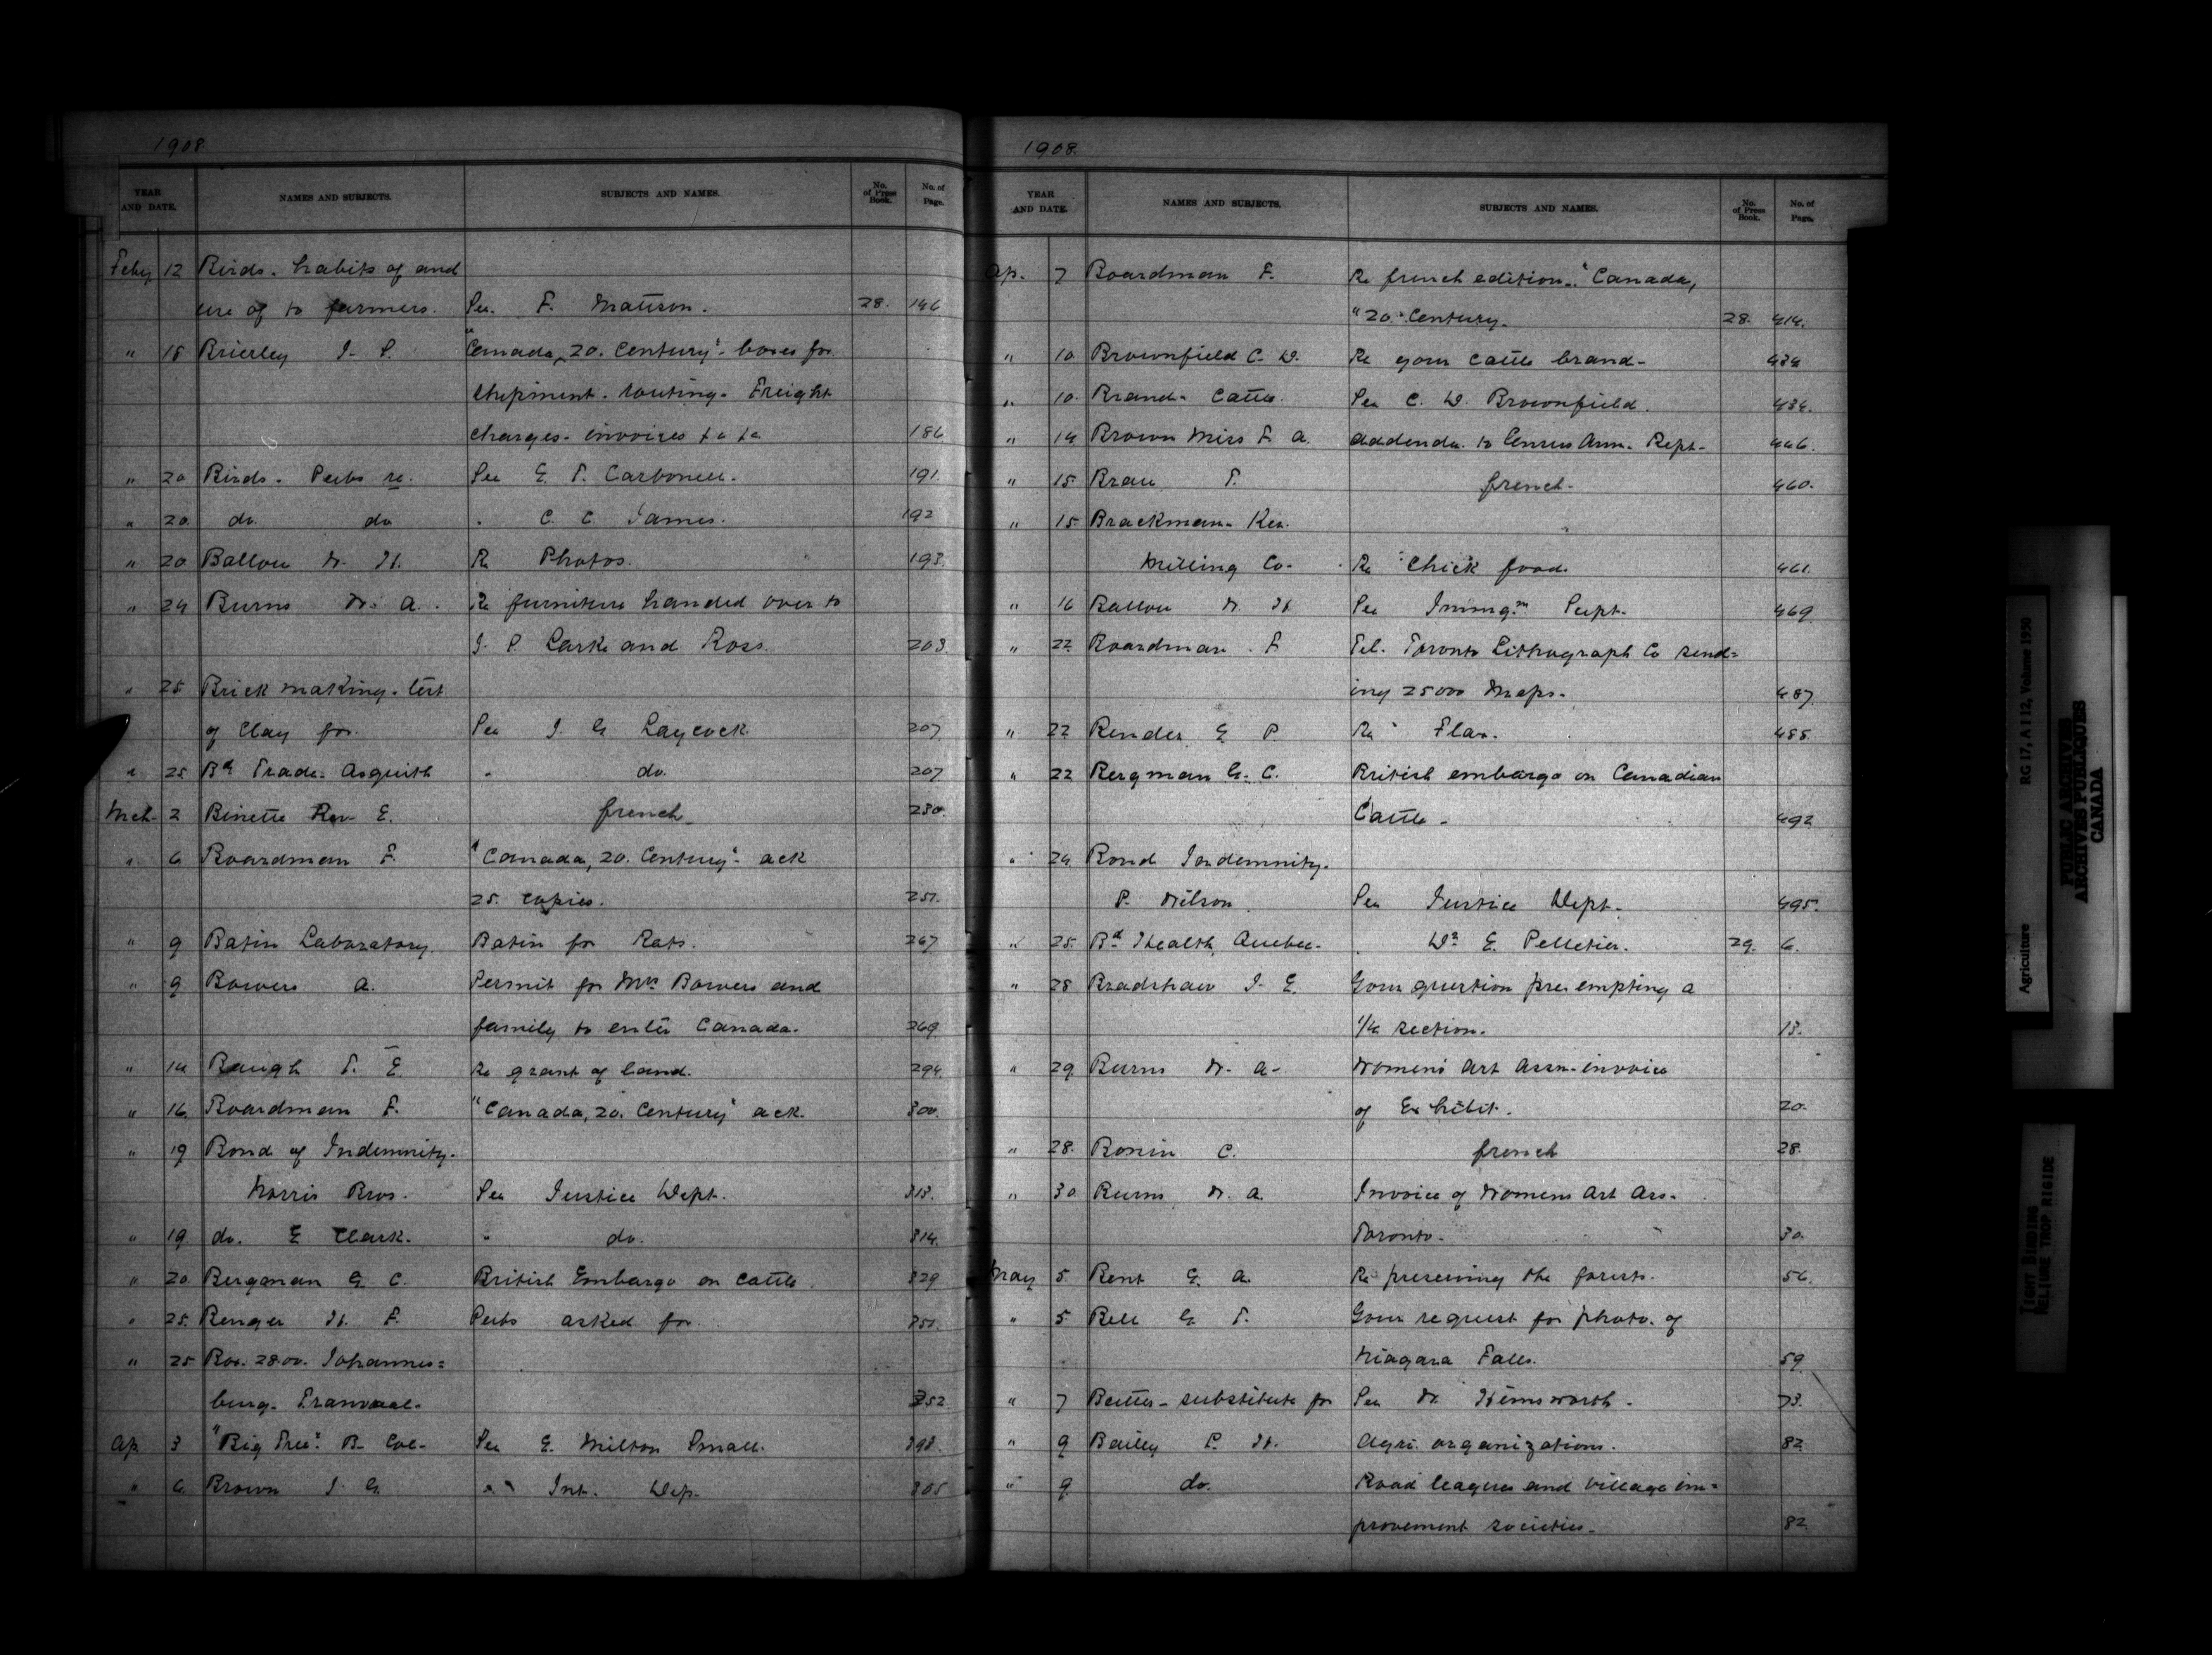 1908.
YEAR AND DATE. NAMES AND SUBJECTS. SUBJECTS AND NAMES. No. of Press Book. No. of Page.
Feby 12 Birds. habits of and
use of to farmers. See. F. Mattson. 28. 146
" 18 Brierley J. S. "Canada, 20. Century" - boxes for
shipment. routing. Freight
charges. invoices &c &c 186
" 20 Birds. Pubs re. See E. T. Carbonell. 191.
" 20. do. do " C. C. James. 192
" 20 Ballou W. H. Re Photos. 193.
" 24 Burns W. A. Re furniture handed over to
J. S. Larke and Ross. 203.
" 25 Brick making. test
of Clay for. See J. G. Laycock. 207
" 25 Bd Trade. Asquith " do. 207
Mch. 2 Binette Rev. E. french. 230.
" 6 Boardman F. "Canada, 20. Century" - ack
25. copies. 251.
" 9 Batin Laboratory. Batin for Rats. 267
" 9 Bowers A. Permit for Mrs Bowers and
family to enter Canada. 269
" 14 Baugh T. E. Re grant of land. 294.
" 16. Boardman F. "Canada, 20. Century" ack. 300.
" 19 Bond of Indemnity.
Norris Bros. See Justice Dept. 313.
" 19. do. E Clark. " do. 314.
" 20. Bergman G. C. British Embargo on Cattle. 329
" 25. Benger H. F. Pubs asked for. 351.
" 25 Box. 2800. Johannes=
burg. Transvaal. 352
Ap 3 "Big Tree" B. Col. See E. Milton Small. 393.
" 6. Brown J. G. " Int. Dep.
1908.
YEAR AND DATE. NAMES AND SUBJECTS. SUBJECTS AND NAMES. No. of Press Book. No. of Page.
Ap. 7 Boardman F. Re french edition. "Canada,
"20." Century. 28. 414.
" 10. Brownfield C. W. Re your cattle brand. 434
" 10. Brand. Cattle. See C. W. Brownfield. 434.
" 14 Brown Miss F. A. Addenda. to Census Ann. Rept. 446.
" 15. Brau T. french. 460.
" 15. Brackman. Ker.
Milling Co. Re "Chick food. 461.
" 16 Ballou W. H See Immgn Supt. 469
" 22. Boardman. F Tel. Toronto Lithograph Co send=
ing 25000 Maps. 487
" 22 Bender E P. Re Flax. 488.
" 22 Bergman G. C. British embargo on Canadian
Cattle. 492
" 24. Bond Indemnity.
P. Wilson See Justice Dept. 495.
" 25. Bd Health, Quebec. " Dr E. Pelletier. 29. 6.
" 28 Bradshaw J. E. Your question pre. empting a
1/4 section. 13.
" 29. Burns W. A. Womens Art Assn. invoice
of Exhibit. 20.
" 28. Bonin C. french 28.
" 30. Burns W. A. Invoice of Womens Art Ass.
Toronto. 30.
May 5. Bent G. A. Re preserving the forests. 56.
" 5. Bell G. T. Your request for photo. of
Niagara Falls. 59.
" 7 Butter - substitute for See W. Hemsworth. 73.
" 9 Bailey L. H. Agri. organizations. 82
" 9. do. Road leagues and village im=
provement societies. 82
Agriculture RG 17, A I 12, Volume 1950
PUBLIC ARCHIVES
ARCHIVES PUBLIQUES
CANADA
TIGHT BINDING
RELIURE TROP RIGIDE